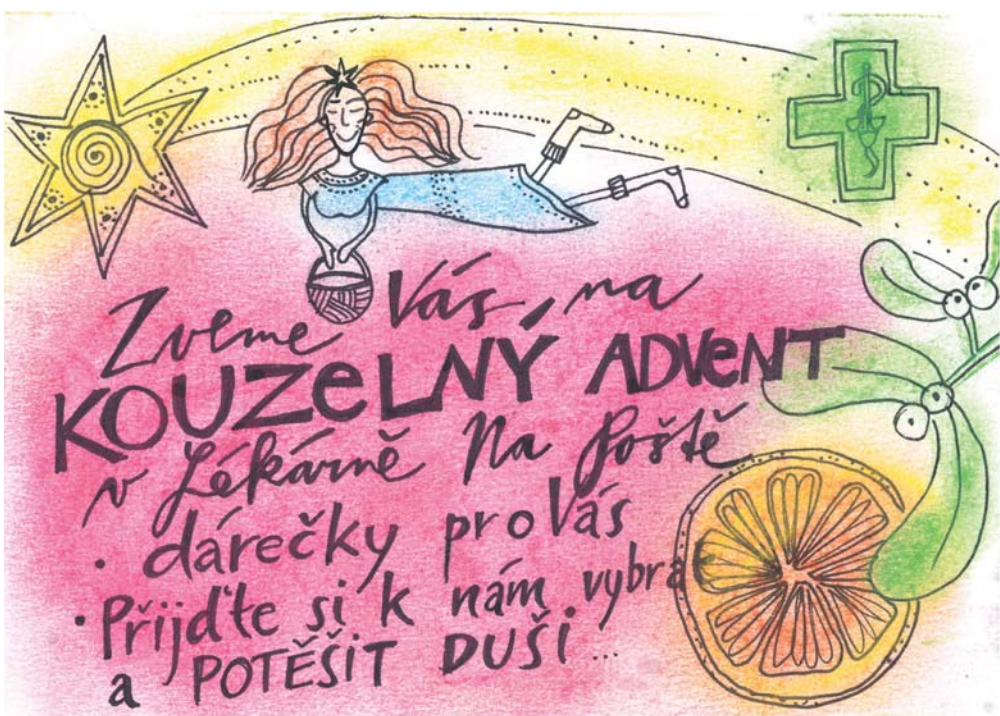 Zveme Vás na
KOUZELNÝ ADVENT
v Lékárně Na Poště
• dárečky pro Vás
• Přijďte si k nám vybra
a POTĚŠIT DUŠI...